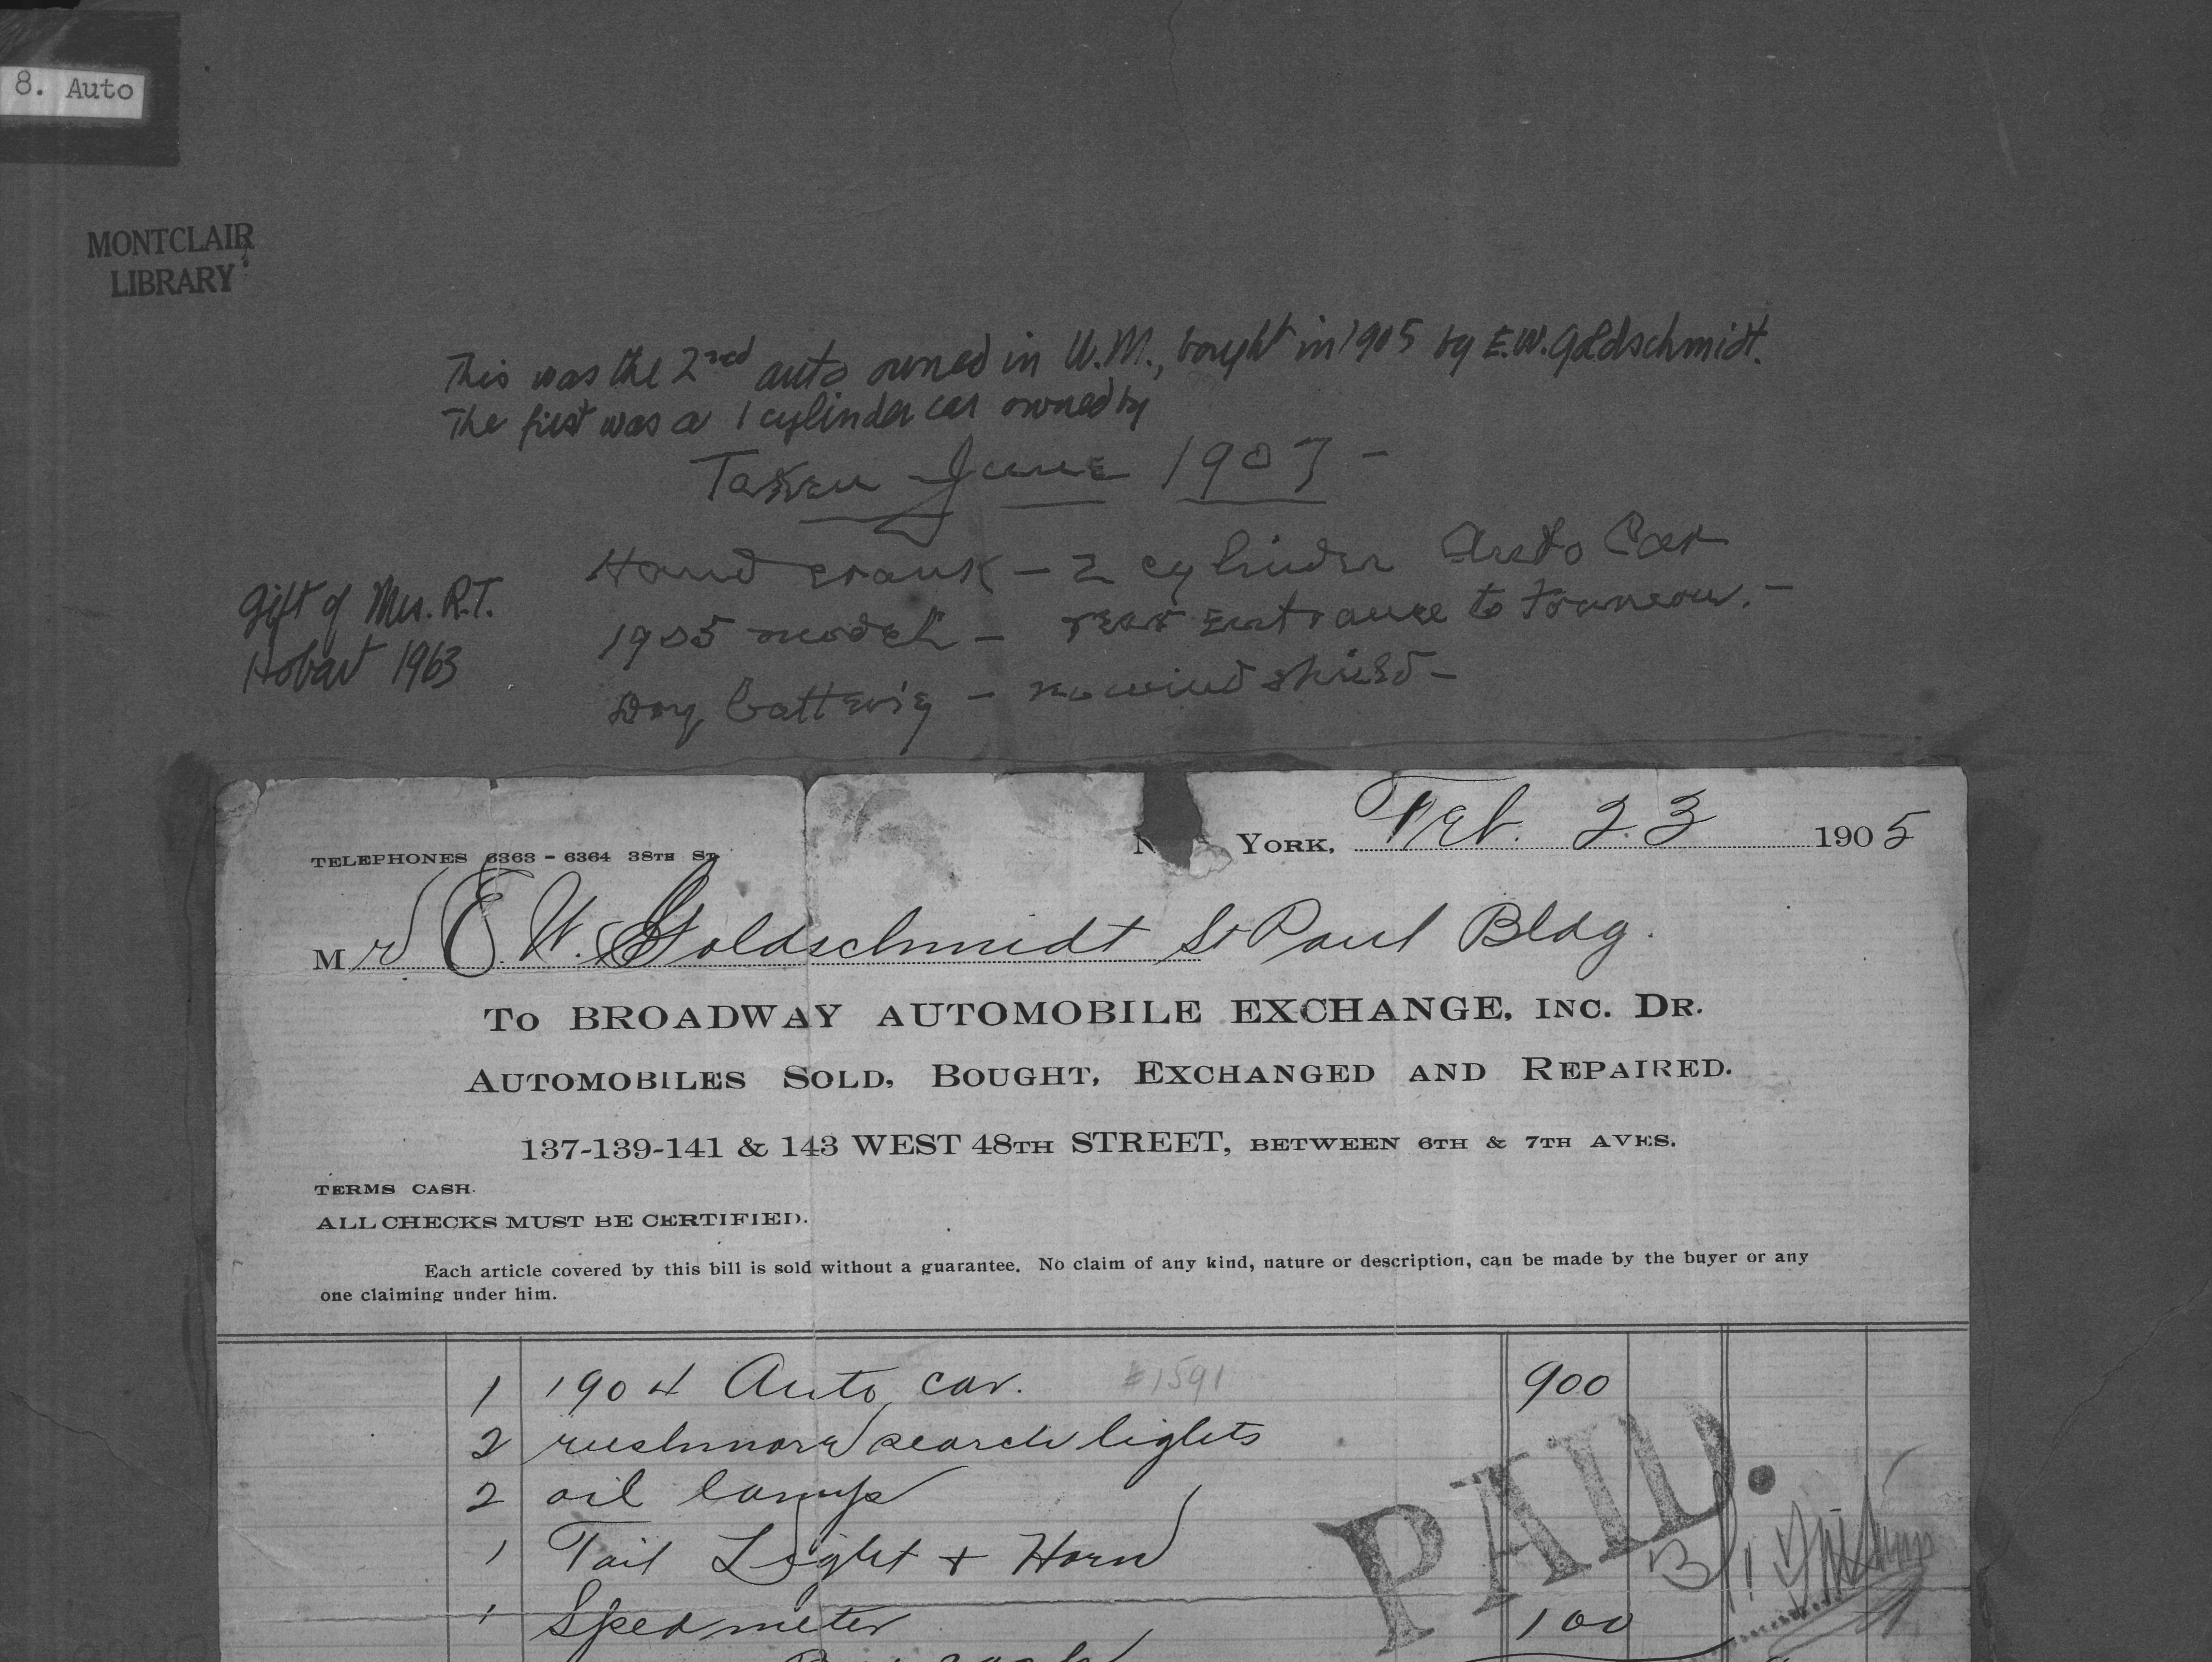 8. Auto
MONTCLAIR
LIBRARY
This was the 2nd auto owned in U.M., bought in 1905 by E.W. Goldschmidt.
The first was a 1 cylinder car owned by
Taken June 1907 -
Hand crank - 2 cylinder Auto Car
1905 model - rear entrance to tonneau. -
Dry battery - no wind shield -
Gift of Mrs. R.T.
Hobart 1963
TELEPHONES 6363 - 6364 38TH ST.
YORK, Feb. 23 1905
Mr E. W. Goldschmidt St Paul Bldg.
TO BROADWAY AUTOMOBILE EXCHANGE, INC. DR.
AUTOMOBILES SOLD, BOUGHT, EXCHANGED AND REPAIRED.
137-139-141 & 143 WEST 48TH STREET, BETWEEN 6TH & 7TH AVES.
TERMS CASH.
ALL CHECKS MUST BE CERTIFIED.
Each article covered by this bill is sold without a guarantee. No claim of any kind, nature or description, can be made by the buyer or any
one claiming under him.
1 1904 Auto car. #1591 900
2 rushmore search lights
2 oil lamps
1 Tail Light + Horn
1 Spedmeter 100
PAID.